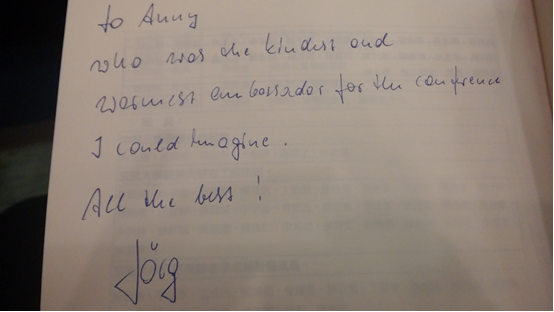 to Anny
who was the kindest and
warmest embassador for the conference
I could imagine.
All the best !
Jörg